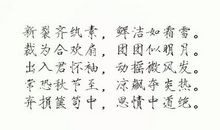 新裂齐纨素，鲜洁如霜雪。
裁为合欢扇，团团似明月。
出入君怀袖，动摇微风发。
常恐秋节至，凉飙夺炎热。
弃捐箧笥中，恩情中道绝。